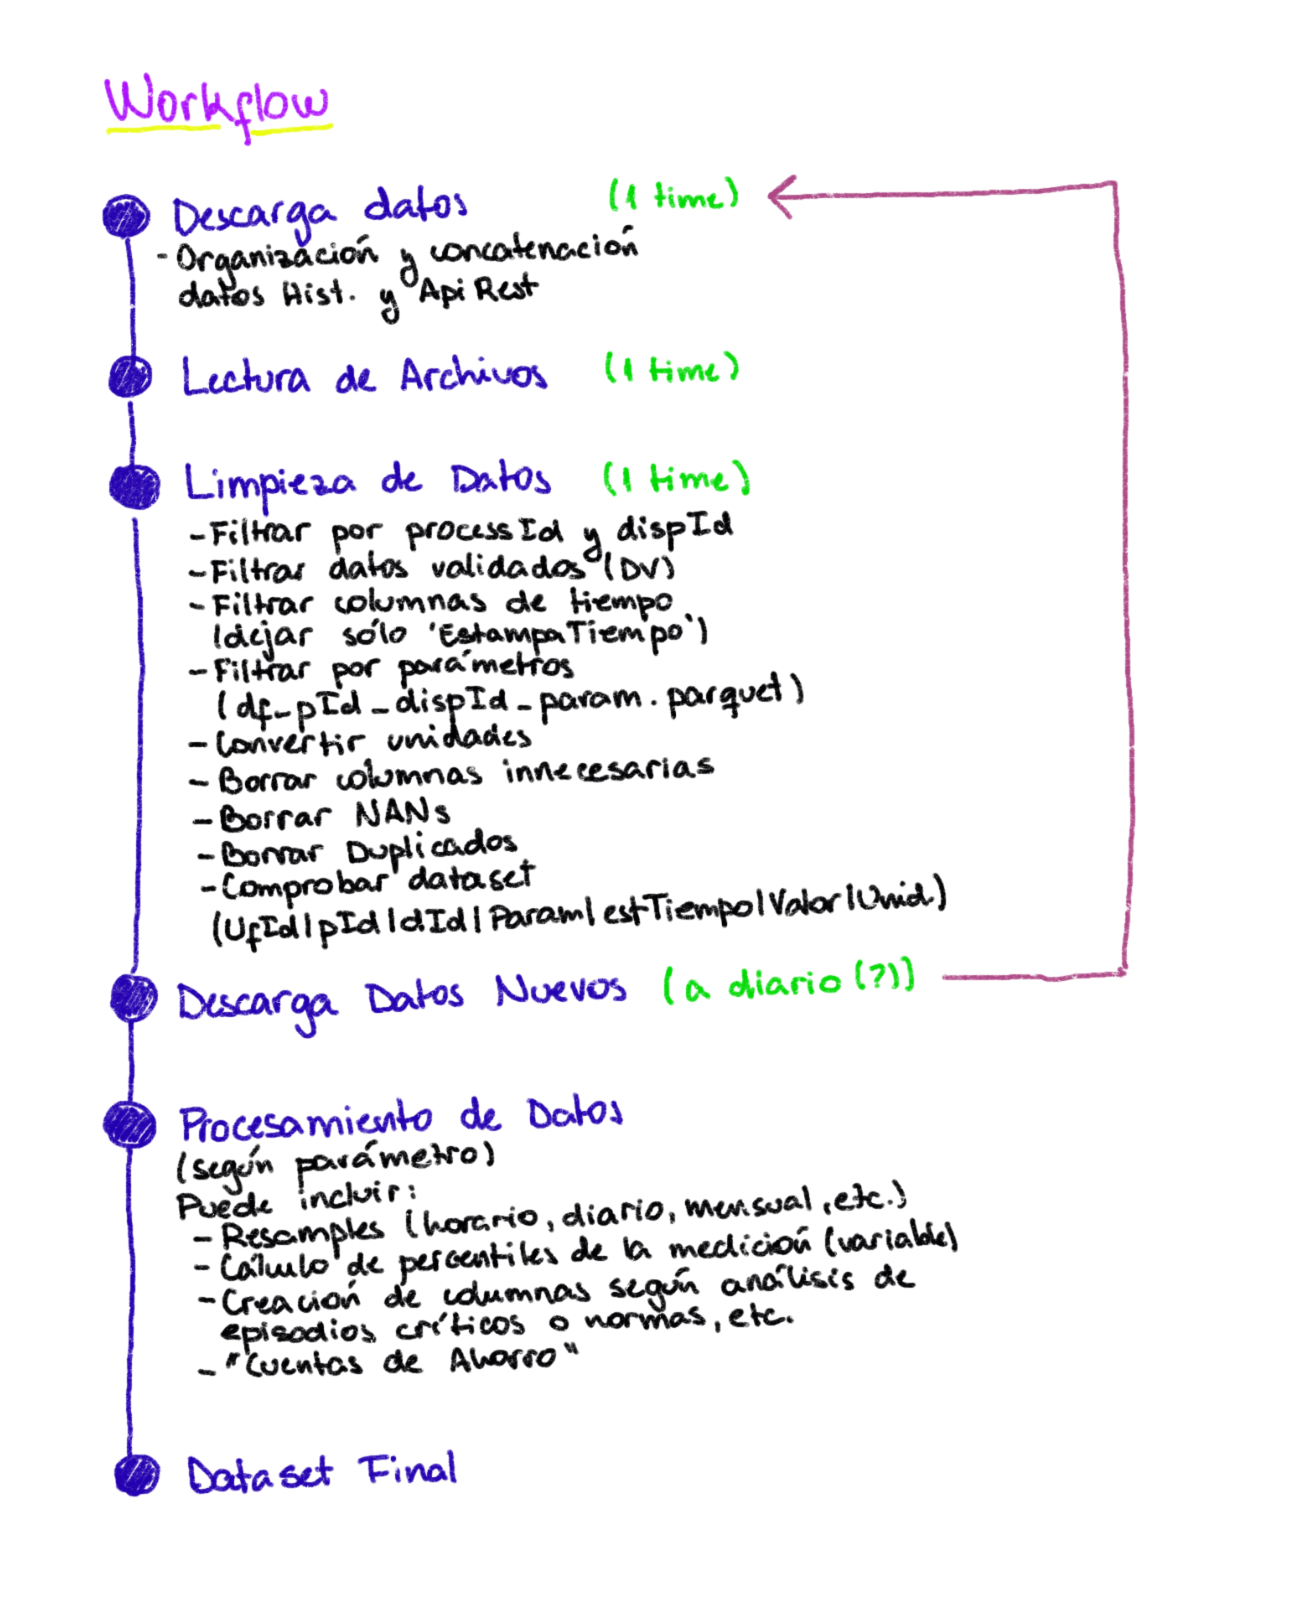 Workflow
Descarga datos (1 time)
- Organización y concatenación
datos Hist. y Api Rest
Lectura de Archivos (1 time)
Limpieza de Datos (1 time)
- Filtrar por processId y dispId
- Filtrar datos validados (DV)
- Filtrar columnas de tiempo
(dejar sólo 'EstampaTiempo')
- Filtrar por parámetros
(df_pId_dispId_param.parquet)
- Convertir unidades
- Borrar columnas innecesarias
- Borrar NANs
- Borrar Duplicados
- Comprobar dataset
(UfId|pId|dId|Param|estTiempo|Valor|Unid.)
Descarga Datos Nuevos (a diario (?))
Procesamiento de Datos
(según parámetro)
Puede incluir:
- Resamples (horario, diario, mensual, etc.)
- Cálculo de percentiles de la medición (variable)
- Creación de columnas según análisis de
episodios críticos o normas, etc.
- "Cuentas de Ahorro"
Dataset Final